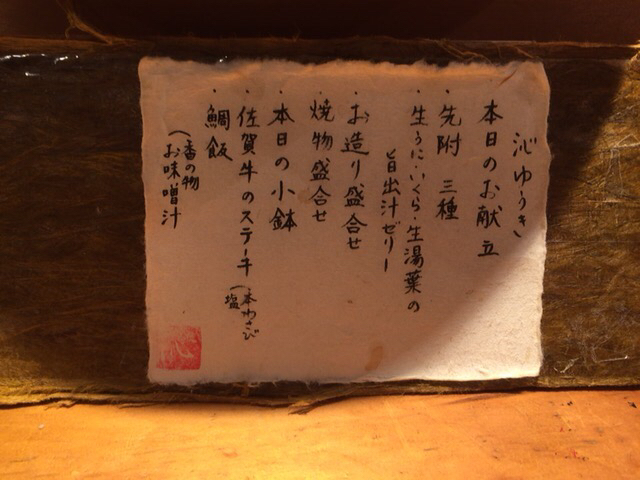 沁ゆうき
本日のお献立
・先附 三種
・生うに・いくら・生湯葉の
旨出汁ゼリー
・お造り盛合せ
・焼物盛合せ
・本日の小鉢
・佐賀牛のステーキ(本わさび
塩
・鯛飯
(香の物
お味噌汁